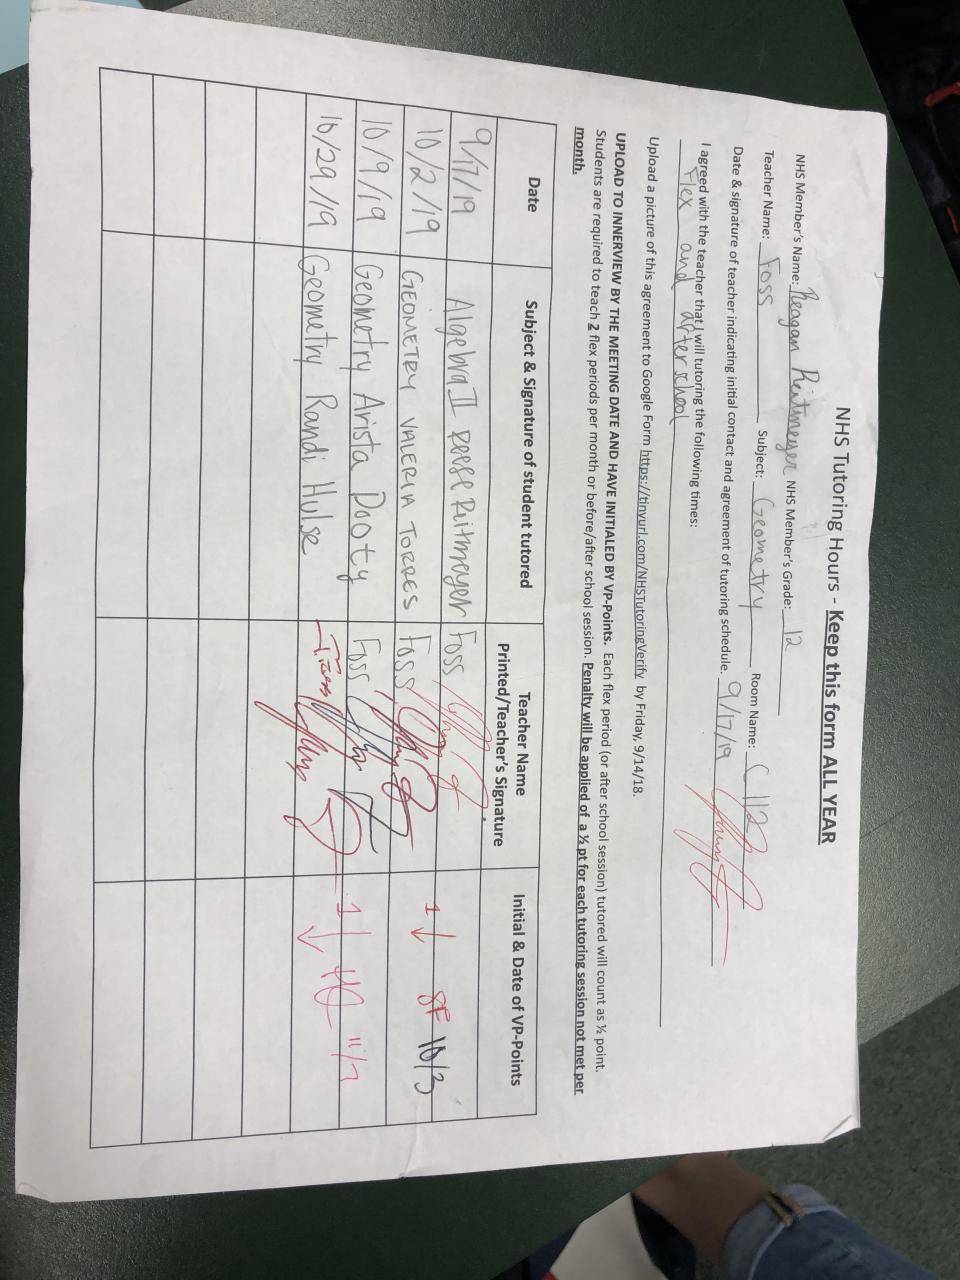 NHS Tutoring Hours - Keep this form ALL YEAR
NHS Member's Name: Reagan Reitmeyer NHS Member's Grade: 12
Teacher Name: Foss Subject: Geometry Room Name: C112
Date & signature of teacher indicating initial contact and agreement of tutoring schedule. 9/17/19
I agreed with the teacher that I will tutoring the following times:
Flex and after school
Upload a picture of this agreement to Google Form https://tinyurl.com/NHSTutoringVerify by Friday, 9/14/18.
UPLOAD TO INNERVIEW BY THE MEETING DATE AND HAVE INITIALED BY VP-Points. Each flex period (or after school session) tutored will count as ½ point.
Students are required to teach 2 flex periods per month or before/after school session. Penalty will be applied of a ½ pt for each tutoring session not met per
month.
Date Subject & Signature of student tutored Teacher Name Printed/Teacher's Signature Initial & Date of VP-Points
9/17/19 Algebra II Reese Reitmeyer Foss
10/2/19 GEOMETRY VALERIA TORRES Foss 1 SF 10/3
10/9/19 Geometry Arista Dooty Foss
10/29/19 Geometry Randi Hulse 1 11/7